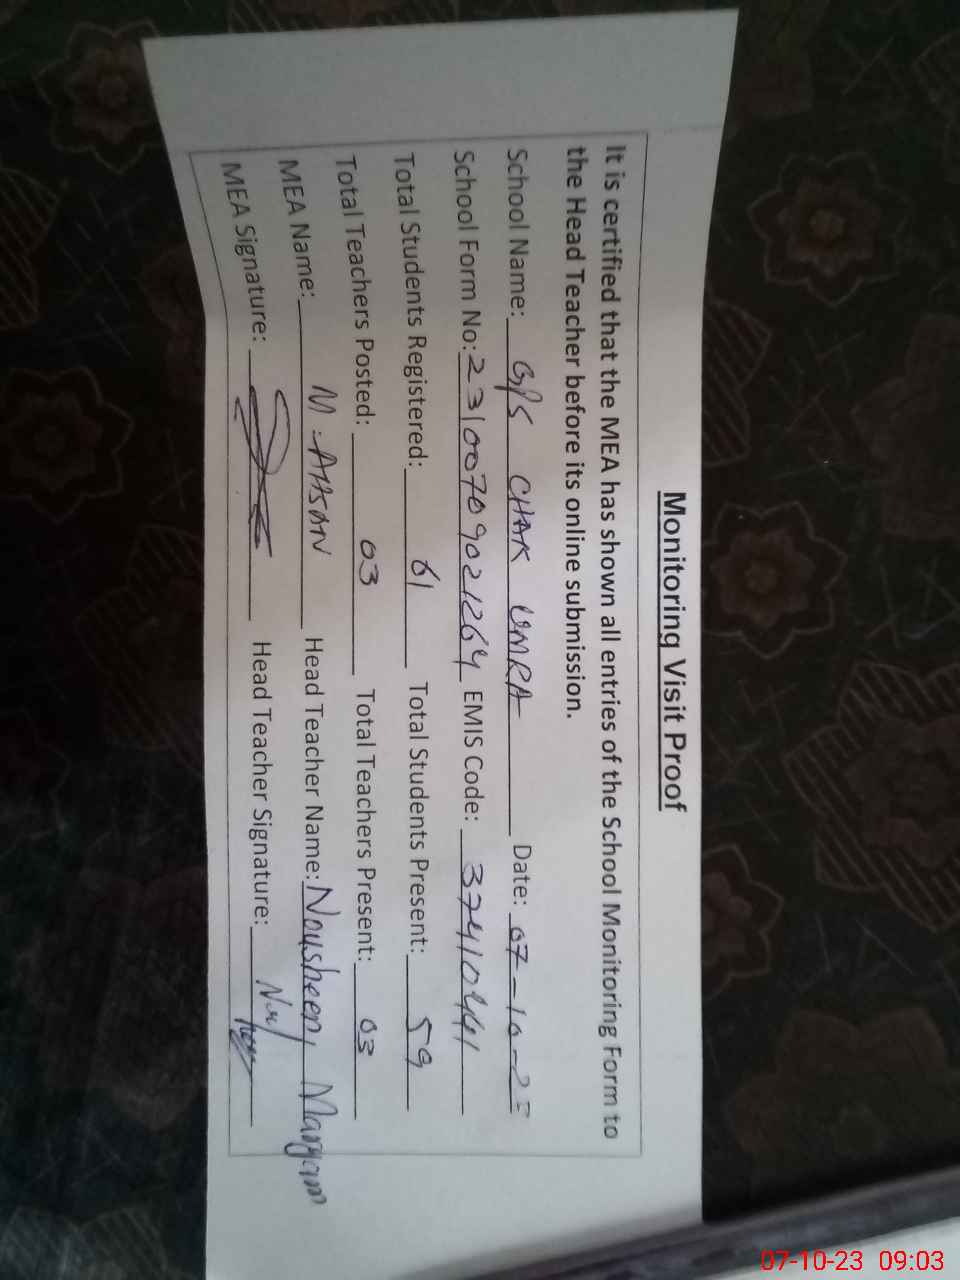 Monitoring Visit Proof
It is certified that the MEA has shown all entries of the School Monitoring Form to
the Head Teacher before its online submission.
School Name: GPS CHAK UMRA Date: 07-10-2
School Form No: 23100709021264 EMIS Code: 37410441
Total Students Registered: 61 Total Students Present: 59
Total Teachers Posted: 03 Total Teachers Present: 03
MEA Name: M. AHSAN Head Teacher Name: Nousheen, Maryam
MEA Signature: Head Teacher Signature:
07-10-23 09:03